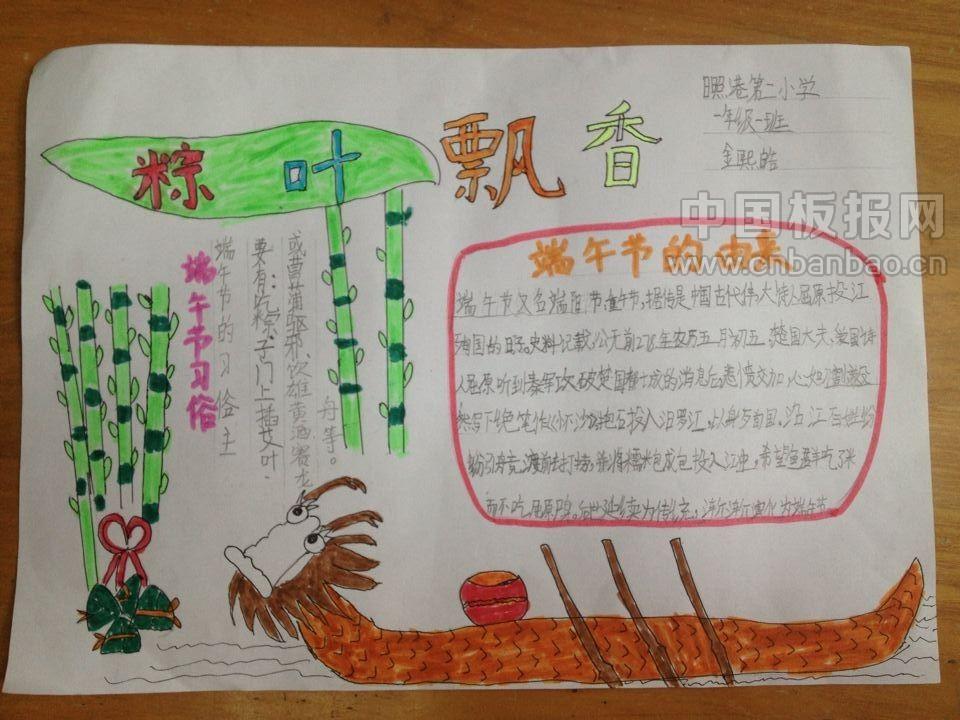 粽叶飘香
照港第二小学
一年级一班
金熙皓
中国板报网
www.cnbanbao.cn
端午节习俗
端午节的习俗主
要有:吃粽子,门上插艾叶,
或菖蒲驱邪,饮雄黄酒,赛龙
舟等。
端午节的由来
端午节又名端阳节、重午节,据传是中国古代伟大诗人屈原投江
殉国的日子。史料记载,公元前278年农历五月初五,楚国大夫、爱国诗
人屈原听到秦军攻破楚国都城的消息后,悲愤交加,心如刀割,毅
然写下绝笔作《怀沙》,抱石投入汨罗江,以身殉国。沿江百姓纷
纷引舟竞渡前去打捞,并将糯米包成包投入江中,希望鱼虾吃了米
而不吃屈原。后世延续为传统,渐渐演化为端午节